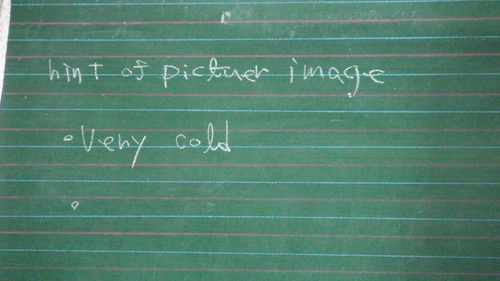 hint of pictuer image
• Very cold
•